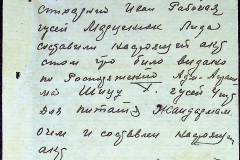 Старший Иван Рабовая
гусей Марценюк Лида
составили настоящей акт
о том что было выдано
по Распоряжений
ма Шицу гусей
для питания Жандармам
о чем и составлен настоящ
акт